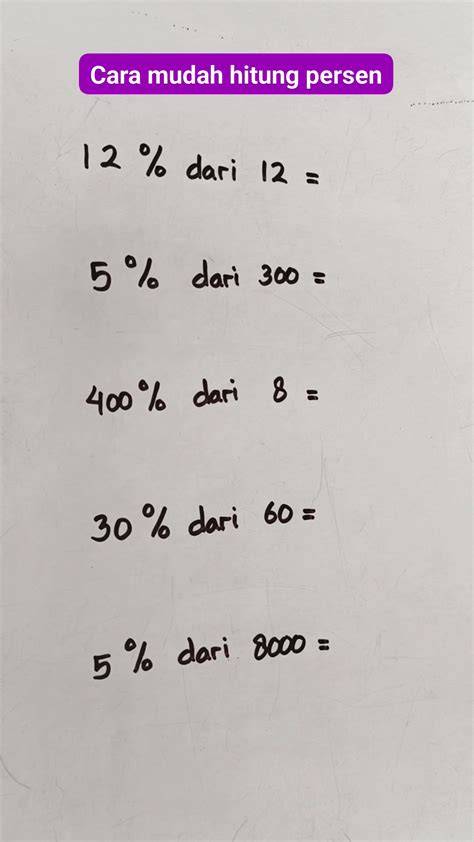 Cara mudah hitung persen
12 % dari 12 =
5 % dari 300 =
400 % dari 8 =
30 % dari 60 =
5 % dari 8000 =